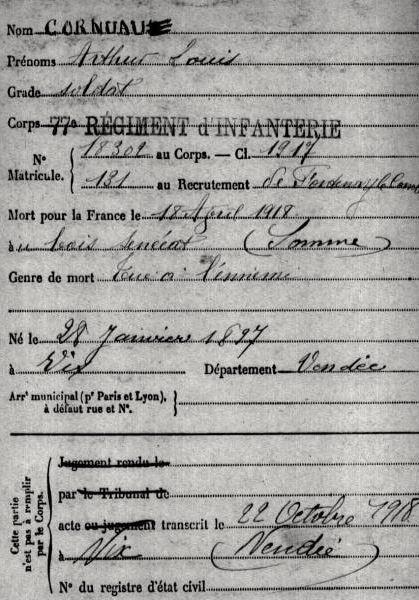 Nom CORNUAU
Prénoms Arthur Louis
Grade soldat
Corps 77e RÉGIMENT d'INFANTERIE
N° 18302 au Corps. — Cl. 1917
Matricule. 131 au Recrutement de Fontenay le Comte
Mort pour la France le 18 Avril 1918
à u bois Sénécat (Somme)
Genre de mort tué à l'ennemi
Né le 28 Janvier 1897
à Vix Département Vendée
Arrt municipal (pr Paris et Lyon), à défaut rue et N°.
Cette partie n'est pas à remplir par le Corps.
Jugement rendu le
par le Tribunal de
acte ou jugement transcrit le 22 Octobre 1918
à Vix (Vendée)
N° du registre d'état civil